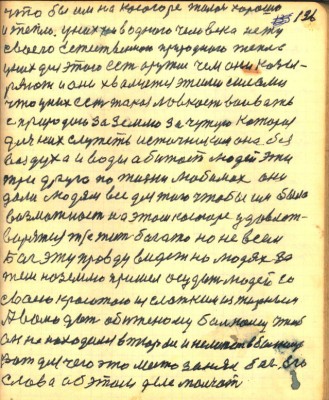 что бы им на косогоре тепло хорошо 126
и тепло. у них ни в одного человека нету
своего естественного природного тепла
у них для этого есть оружие чем они ковы-
ряют и они хвалются этими силами
что у них есть такая ловкость воивать
с природою за землю за чужую которая
для них служеть источником она без
воздуха и воды а бижает людей эти
три друга по жизни любимых они
дали людям все для того чтобы им была
возможность на этом косогоре удовлет-
варятся живет богато но не всем
Бог эту правду видеть на людях за
тем на землю пришел осудит людей со
своею красотою их сладким их терпением
А волю дать обиженому больному чтоб
он не находился в тюрме и не в больнице
вот для чего это место занял Бог, его
слова об этом деле молчат